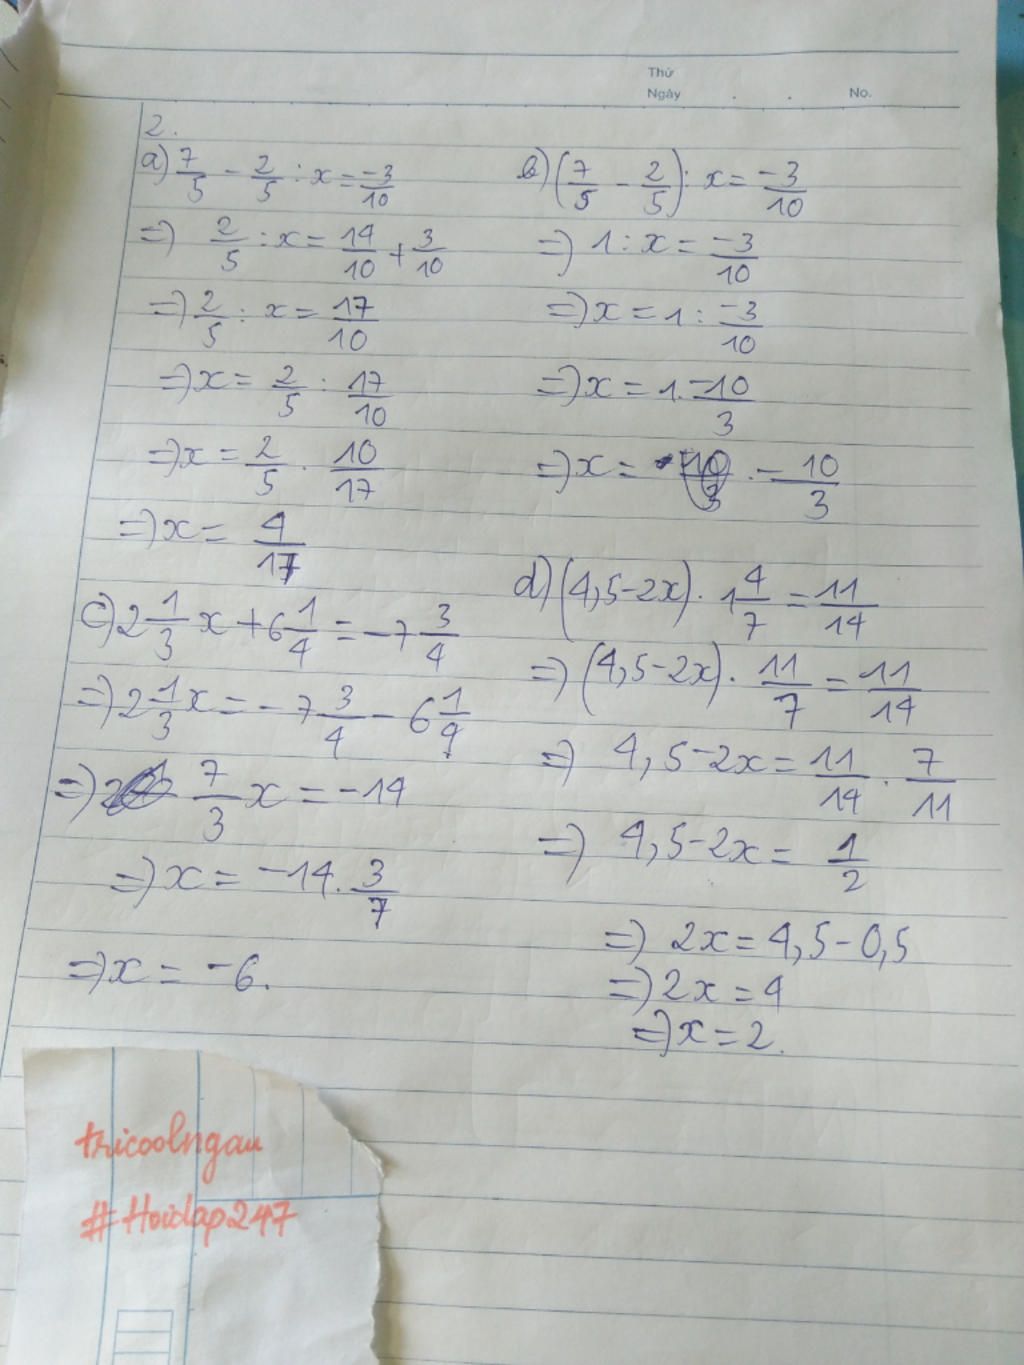 Thứ
Ngày . . No.
2.
a) 7/5 - 2/5 : x = -3/10
=) 2/5 : x = 14/10 + 3/10
=) 2/5 : x = 17/10
=) x = 2/5 : 17/10
=) x = 2/5 . 10/17
=) x = 4/17
b) (7/5 - 2/5) : x = -3/10
=) 1 : x = -3/10
=) x = 1 : -3/10
=) x = 1 . -10/3
=) x = -10/3
c) 2 1/3 x + 6 1/4 = -7 3/4
=) 2 1/3 x = -7 3/4 - 6 1/4
=) 7/3 x = -14
=) x = -14 . 3/7
=) x = -6.
d) (4,5-2x) . 1 4/7 = 11/14
=) (4,5-2x) . 11/7 = 11/14
=) 4,5-2x = 11/14 . 7/11
=) 4,5-2x = 1/2
=) 2x = 4,5-0,5
=) 2x = 4
=) x = 2.
tricoolngau
#Hoidap247